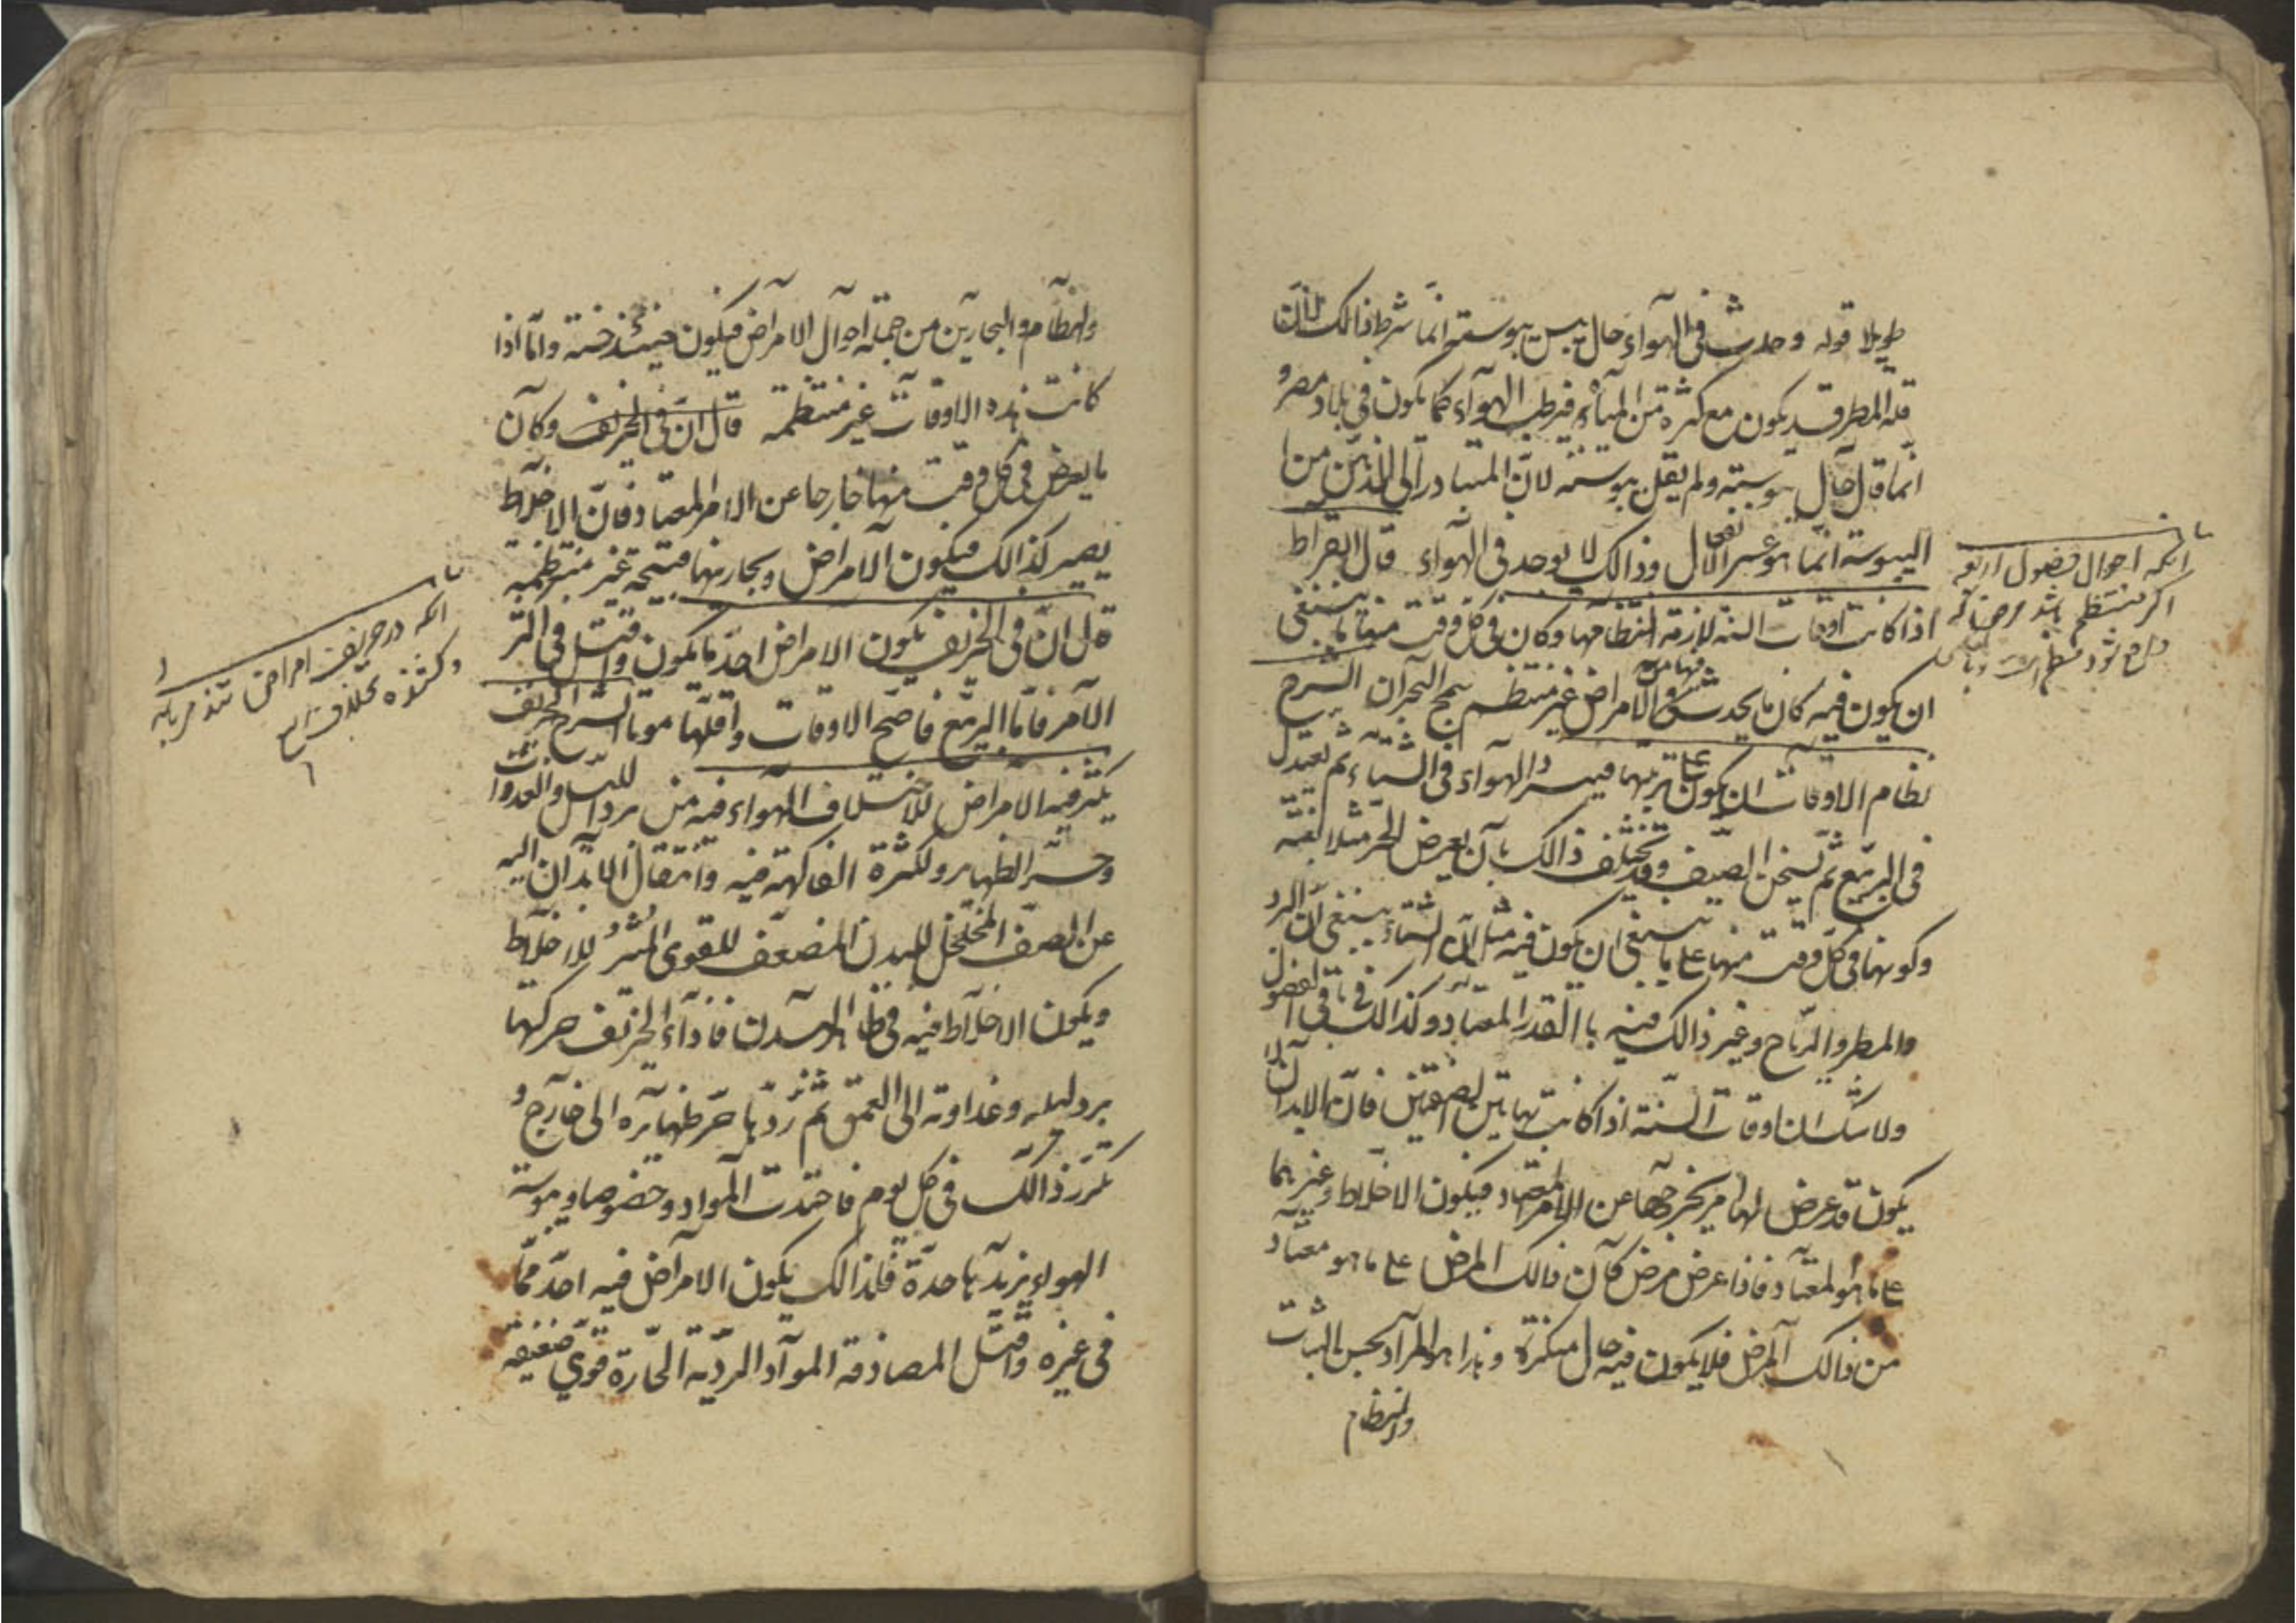 طويلا قوله وحدث فى الهوآء حال يبس يبوسته انما شرط ذالك لانّ
قلة المطر قد يكون مع كثرة من المياه فيرطب الهوآء كما يكون فى بلاد مصر و
انما قال حال يبوسته ولم يقل يبوسته لانّ المتبادر الى الذهن من
اليبوسة انما هو عسر الانفعال وذالك لا يوجد فى الهوآء قال ابقراط
اذا كانت اوقات السنه لازمة لنظامها وكان فى كل وقت منها ما ينبغى
ان يكون فيه كان ما يحدث فيها من الامراض غير منتظم سمج البحران الشرح
نظام الاوقات ان يكون على ترتيبها فيبرد الهوآء فى الشتآء ثم يعتدل
فى الربيع ثم يسخن الصيف وقد يختلف ذالك بآن يعرض الحر مثلا
وكونها فى كل وقت منها على ما ينبغى ان يكون فيه مثل انّ الشتآء ينبغى ان البرد
والمطر والرياح وغير ذالك فيه باالقدر المعتاد وكذالك فى باقى الفصول
ولا شك ان اوقات السنة اذا كانت بهاتين الصفتين فانّ الابدان لا
يكون قد عرض لها امر يخرجها عن الامر المعتاد فيكون الاخلاط وغيرها
على ما هو المعتاد فاذا عرض مرض كآن ذالك المرض على ما هو معتاد
من ذالك المرض فلا يكون فيه حال منكرة وهذا هو المرآد بحسن الثبات
والنظام
انكه احوال فصول اربعه
اكر منتظم باشد مرضها كه
والنظام والبحارين من جملة احوآل الامرآض فيكون حينئذ حسنة وامّا اذا
كانت هذه الاوقات غير منتظمة قال انّ فى الخريف وكآن
ما يعرض فى كل وقت منها خارجا عن الامر المعتاد فانّ الاخلاط
يصير كذالك فيكون الآمراض وبحارينها قبيحة غير منتظمه
قال انّ فى الخريف يكون الامراض احدّ ما يكون واقتل فى اكثر
الآمر فامّا الربيع فاصحّ الاوقات واقلها موتا الشرح الخريف
يكثر فيه الامراض للاختلاف الهوآء فيه من برد الليل والغدوات
وحرّ الظهاير ولكثرة الفاكهة فيه وانتقال الابدان اليه
عن الصيف المخلخل للبدن المضعف للقوى المثير للاخلاط
ويكون الاخلاط فيه فى ظاهر البدن فاذآء الخريف حركها
برد ليله وغداوته الى العمق ثم ردّها حرّ ظهايره الى خارج و
تكرر ذالك فى كل يوم فاحتدت المواد وخصوصا ويبوسة
الهواء يزيدها حدة فلذالك يكون الامرآض فيه احدّ ممّا
فى غيره واقتل لمصادفة الموآد الرديّة الحارّة قوى ضعيفه
انكه در خريف امراض تند مزيابد
وكشنده بخلاف ربيع